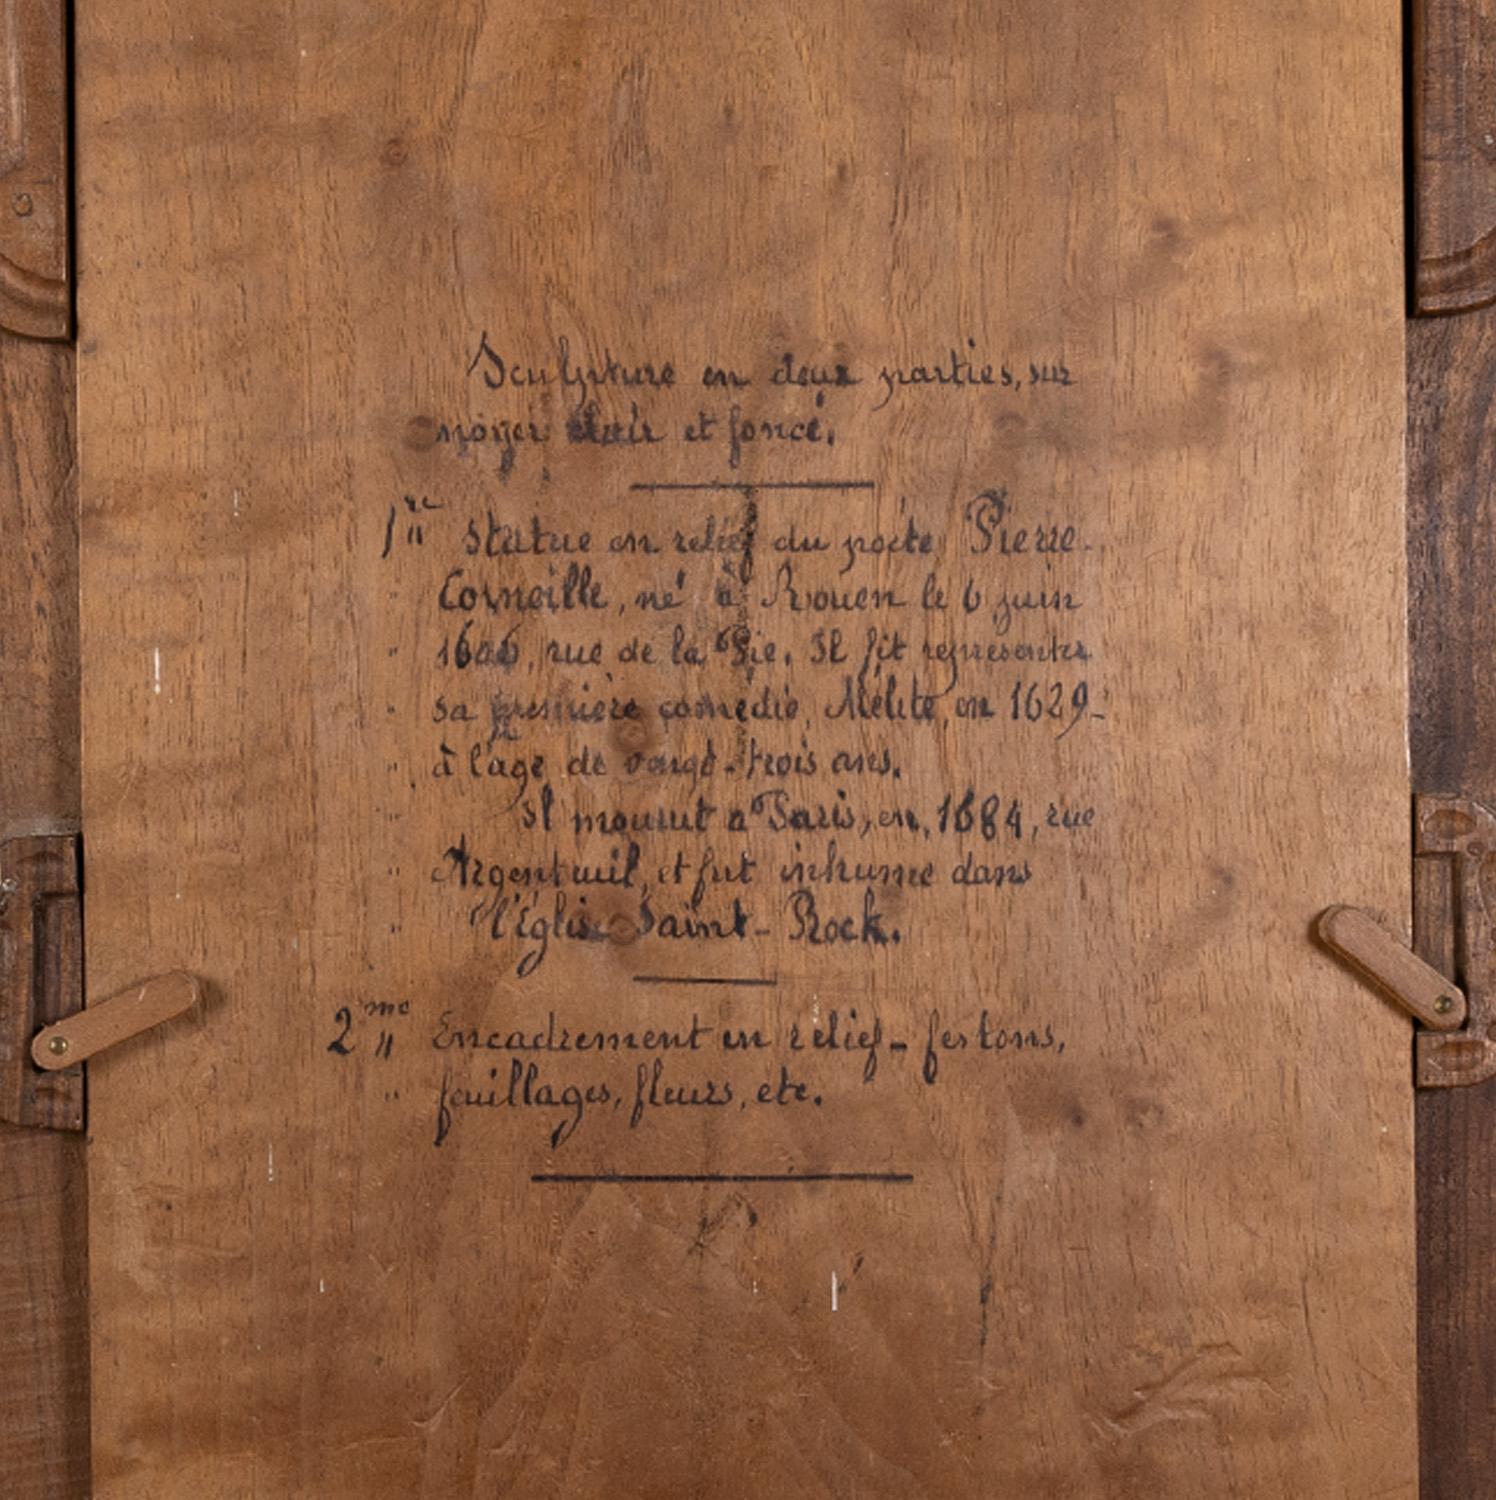 Sculpture en deux parties, sur
noyer clair et foncé.
1re statue en relief du poète Pierre-
Corneille, né à Rouen le 6 juin
" 1606, rue de la Pie. Il fit représenter
" sa première comédie, Mélite, en 1629-
" à l'age de vingt-trois ans.
Il mourut a Paris, en, 1684, rue
" Argenteuil, et fut inhumé dans
" l'Église Saint-Rock.
2me " Encadrement en relief - festons,
" feuillages, fleurs, etc.